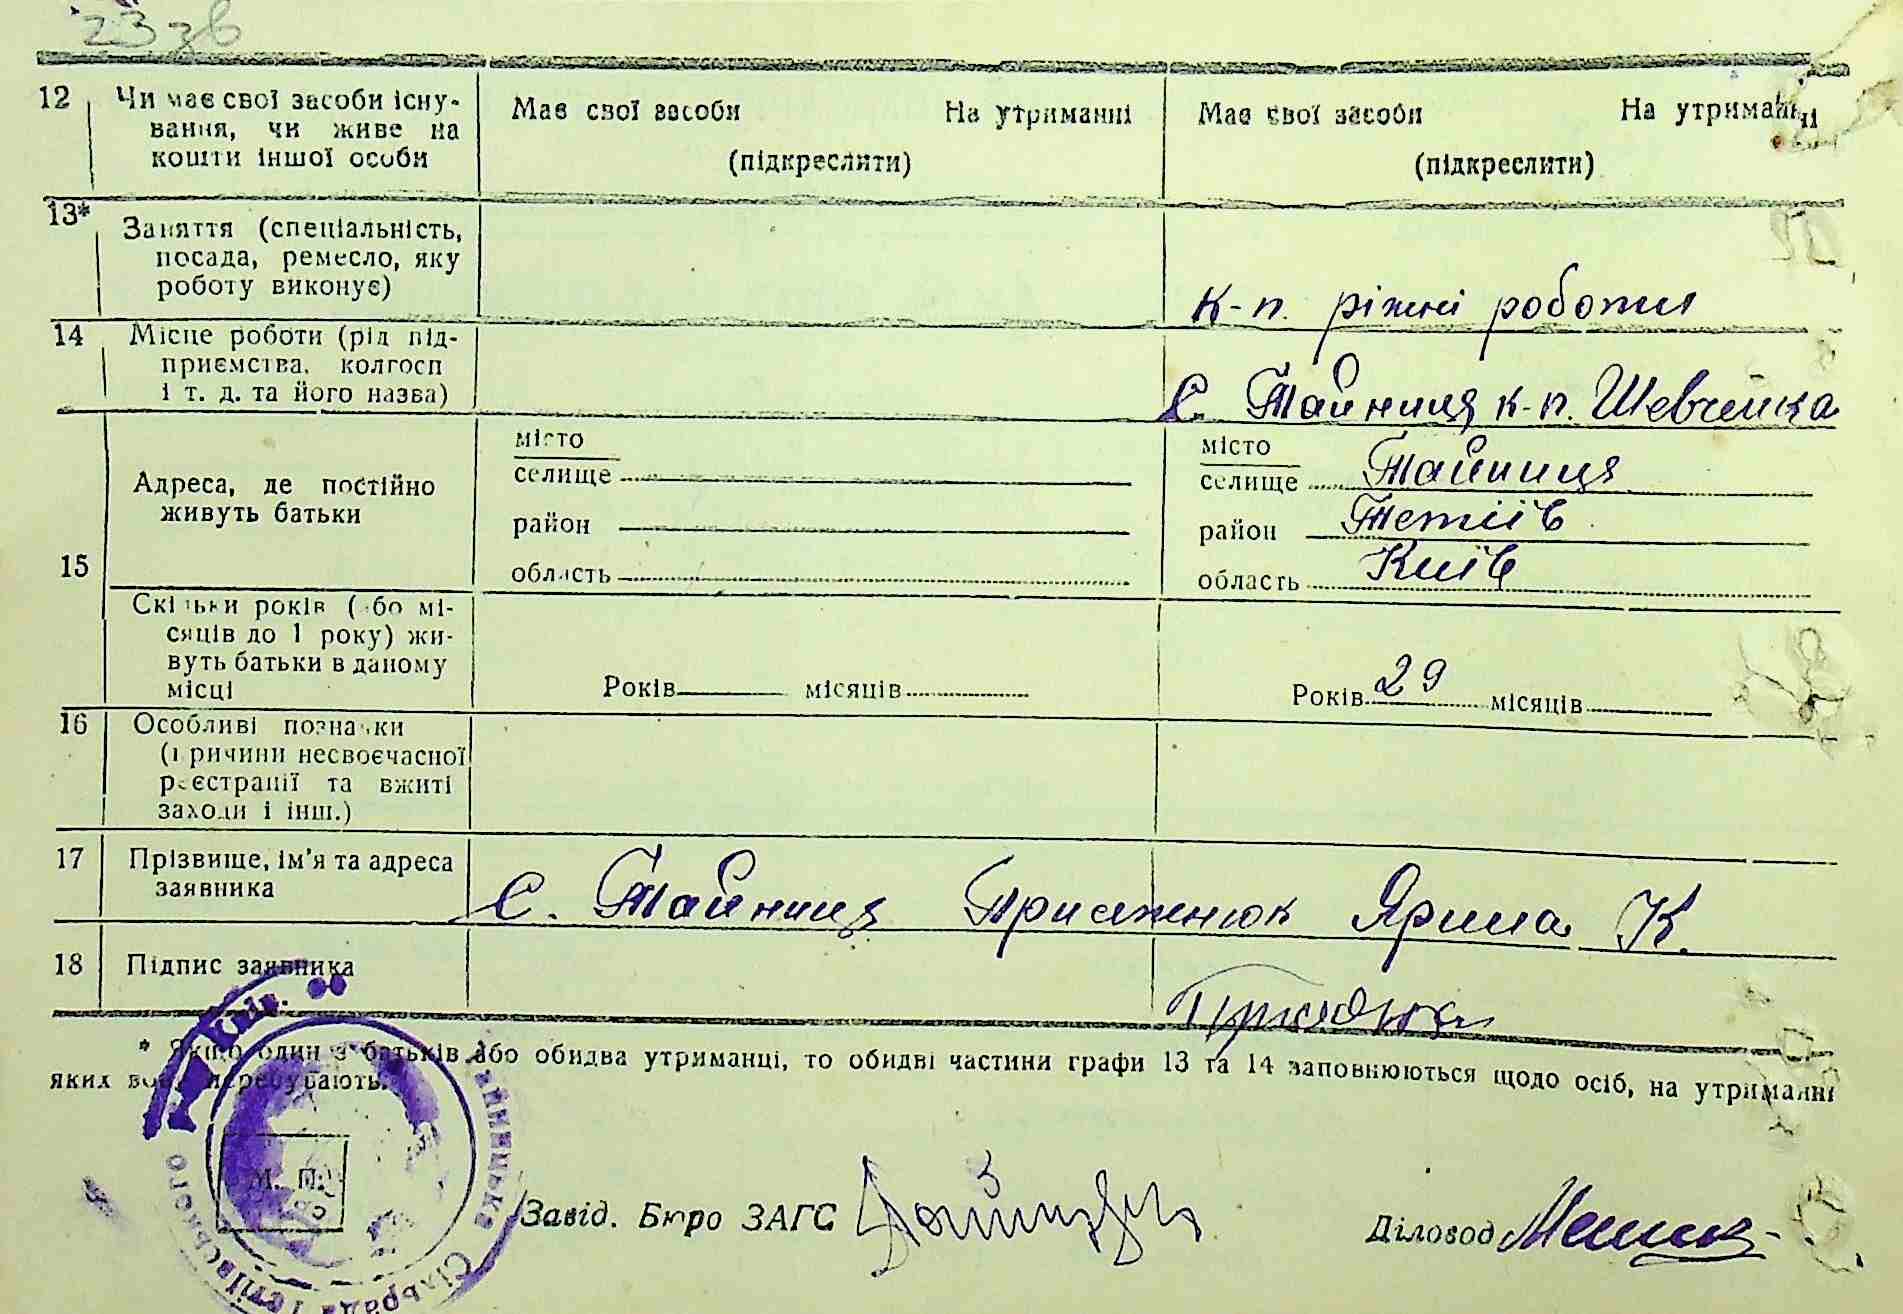 23 зв
12 Чи має свої засоби існу-
вання, чи живе на
кошти іншої особи
Має свої засоби На утриманні
(підкреслити)
Має свої засоби На утриманні
(підкреслити)
13* Заняття (спеціальність,
посада, ремесло, яку
роботу виконує)
к-п. ріжні роботи
14 Місце роботи (рід під-
приємства, колгосп
і т. д. та його назва)
с. Тайниця к-п. Шевченка
15 Адреса, де постійно
живуть батьки
місто
селище
район
область
місто
селище Тайниця
район Тетіїв
область Київ
Скільки років (або мі-
сяців до 1 року) жи-
вуть батьки в даному
місці
Років місяців
Років 29 місяців
16 Особливі позначки
(причини несвоєчасної
реєстрації та вжиті
заходи і інш.)
17 Прізвище, ім'я та адреса
заявника
с. Тайниця Присяжнюк Ярина К.
18 Підпис заявника
* Якщо один з батьків або обидва утриманці, то обидві частини графи 13 та 14 заповнюються щодо осіб, на утриманні
яких вони перебувають.
М. П.
Сільрада Тетіївського
Завід. Бюро ЗАГС
Діловод